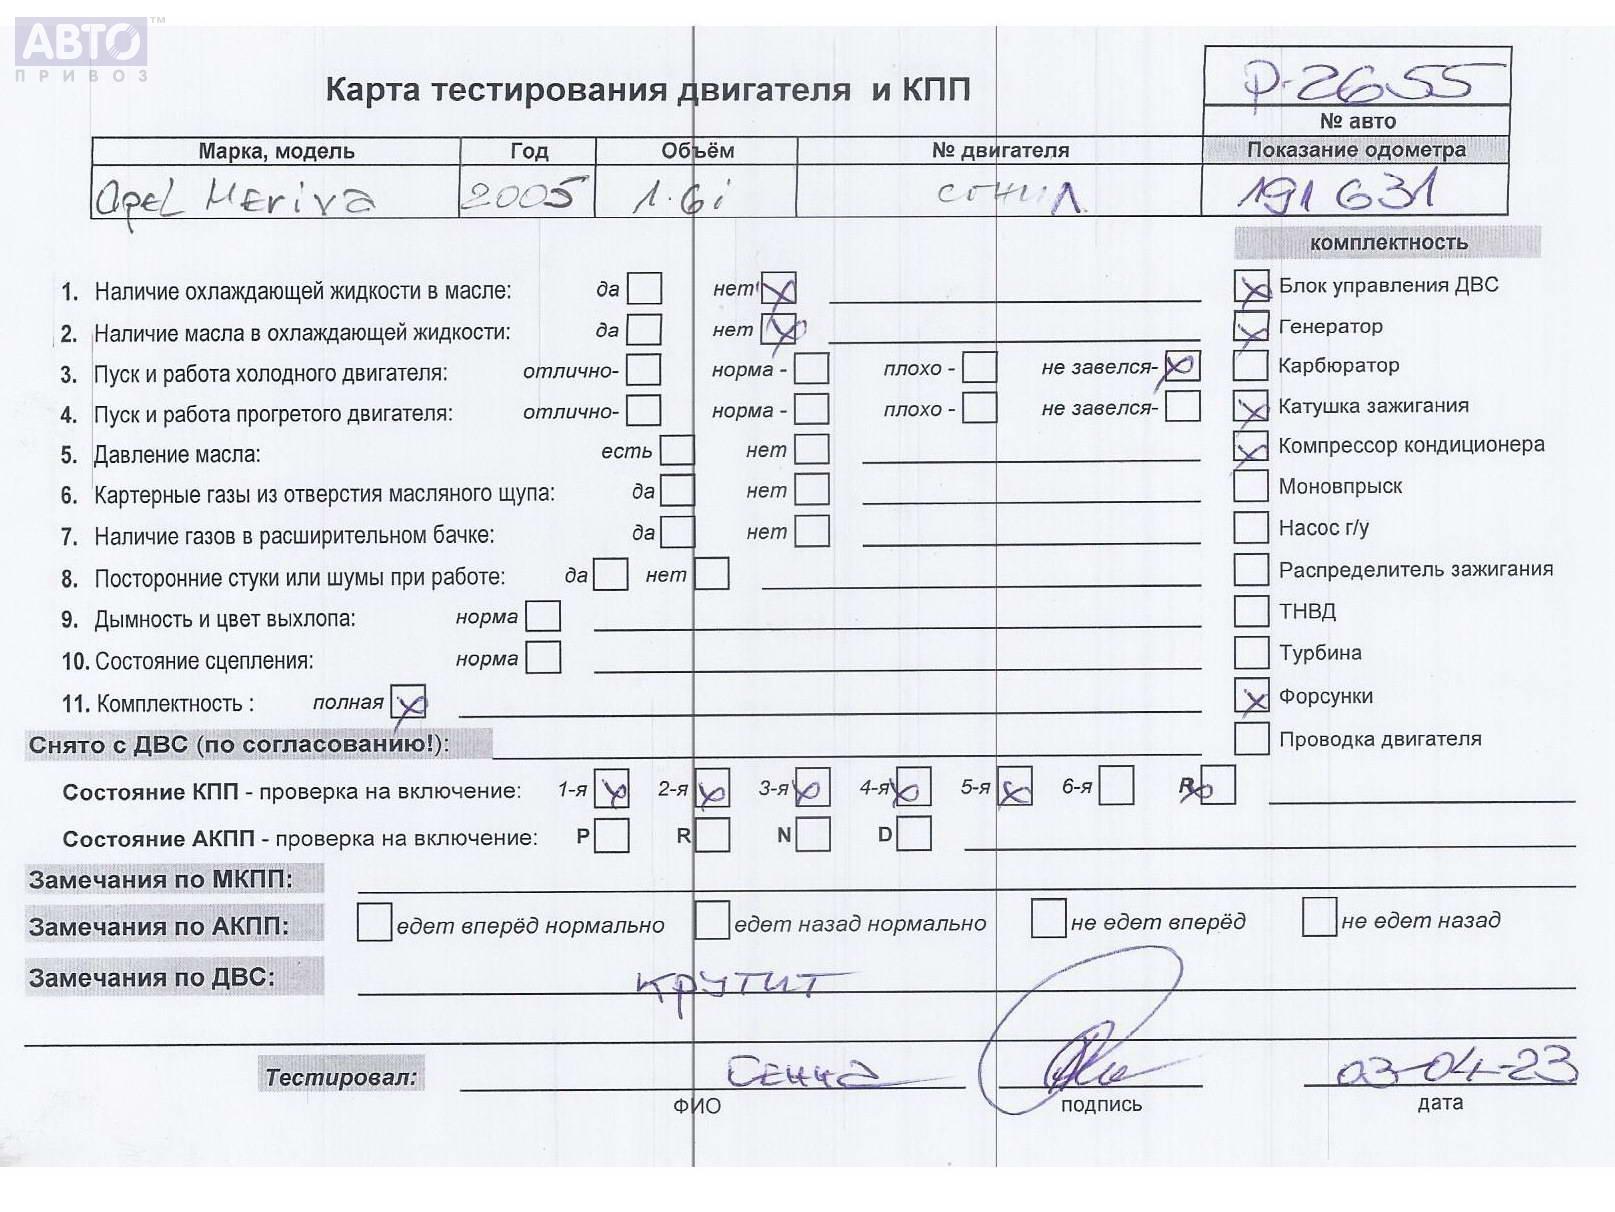 АВТО™
ПРИВОЗ
Карта тестирования двигателя и КПП
Р-2655
№ авто
Марка, модель Год Объём № двигателя Показание одометра
Opel Meriva 2005 1.6i 191 631
комплектность
1. Наличие охлаждающей жидкости в масле: да нет Блок управления ДВС
2. Наличие масла в охлаждающей жидкости: да нет Генератор
3. Пуск и работа холодного двигателя: отлично- норма - плохо - не завелся- Карбюратор
4. Пуск и работа прогретого двигателя: отлично- норма - плохо - не завелся- Катушка зажигания
5. Давление масла: есть нет Компрессор кондиционера
6. Картерные газы из отверстия масляного щупа: да нет Моновпрыск
7. Наличие газов в расширительном бачке: да нет Насос г/у
8. Посторонние стуки или шумы при работе: да нет Распределитель зажигания
9. Дымность и цвет выхлопа: норма ТНВД
10. Состояние сцепления: норма Турбина
11. Комплектность : полная Форсунки
Снято с ДВС (по согласованию!): Проводка двигателя
Состояние КПП - проверка на включение: 1-я 2-я 3-я 4-я 5-я 6-я R
Состояние АКПП - проверка на включение: P R N D
Замечания по МКПП:
Замечания по АКПП: едет вперёд нормально едет назад нормально не едет вперёд не едет назад
Замечания по ДВС: крутит
Тестировал: 03-04-23
ФИО подпись дата